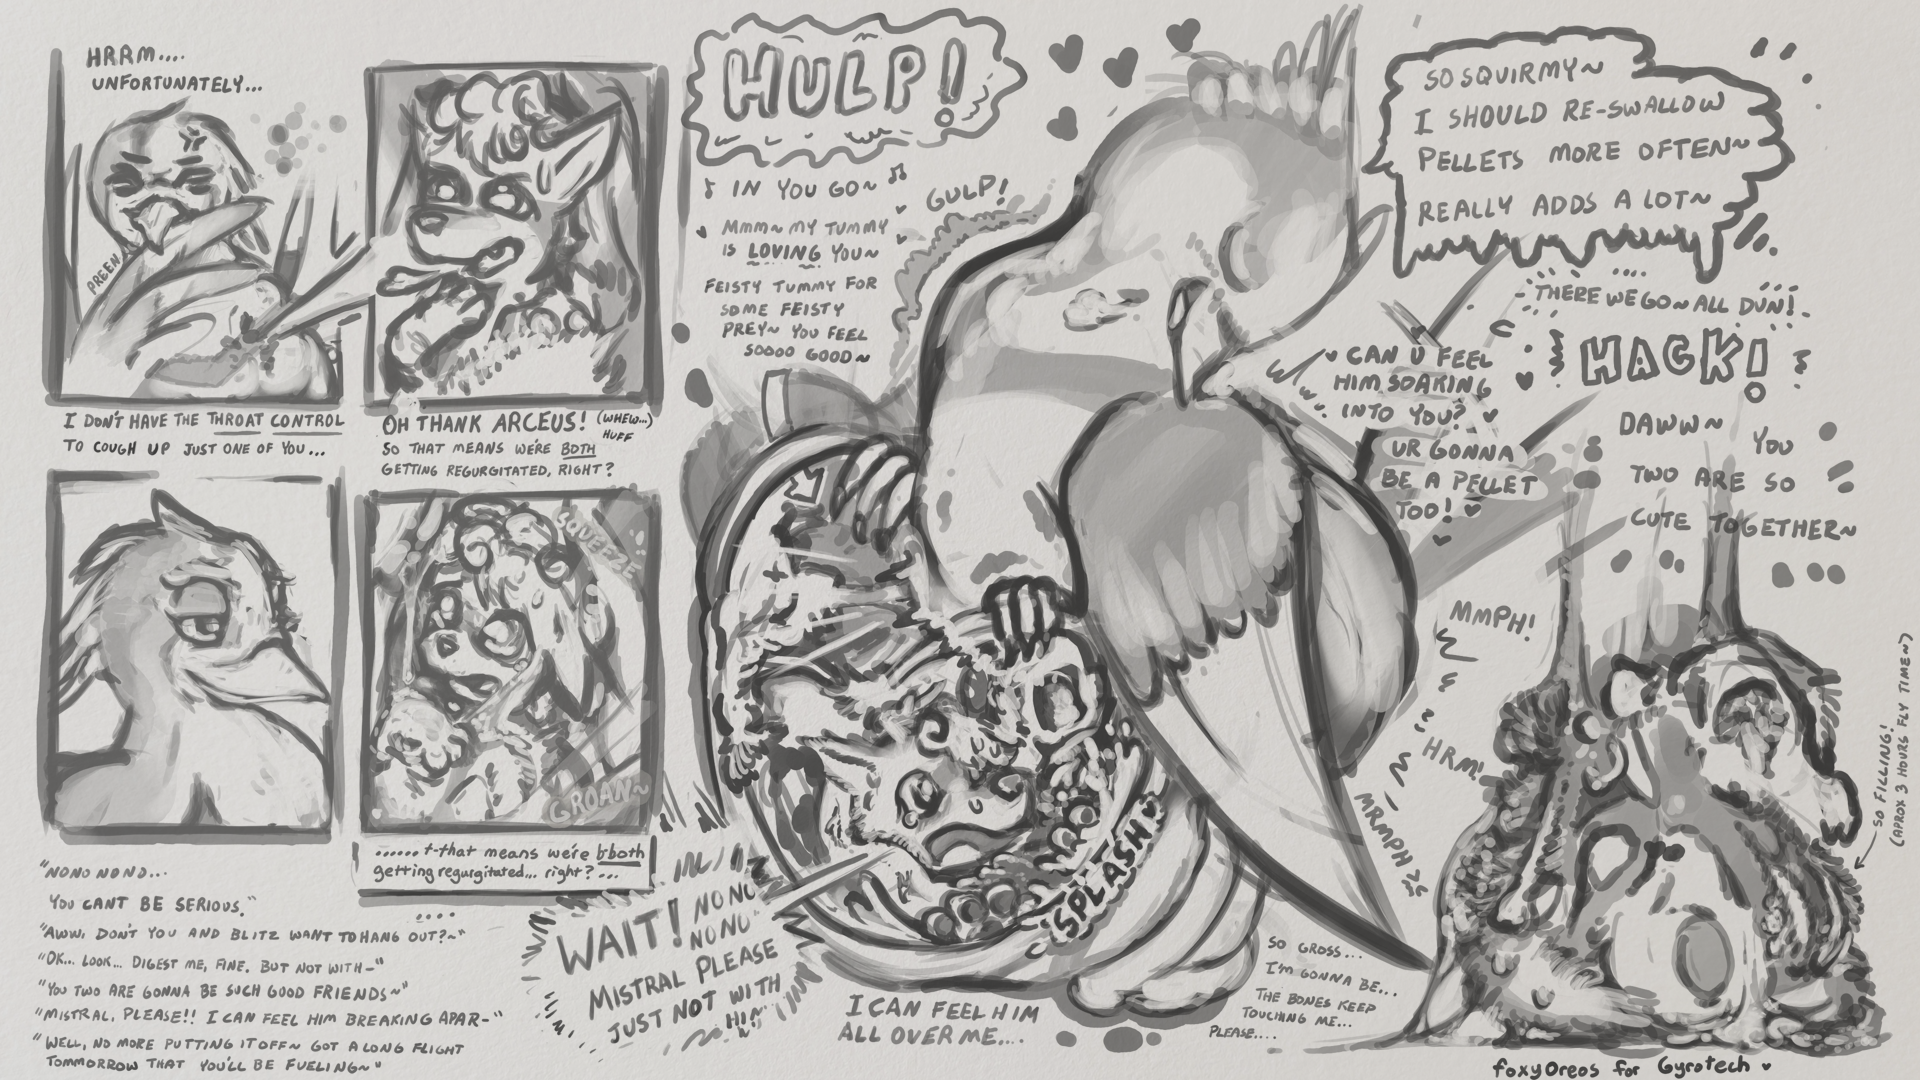 HRRM....
UNFORTUNATELY...
PREEN
I DON'T HAVE THE THROAT CONTROL
TO COUGH UP JUST ONE OF YOU...
OH THANK ARCEUS! (WHEW...)
HUFF
SO THAT MEANS WE'RE BOTH
GETTING REGURGITATED, RIGHT?
SQUEEZE
GROAN~
...... t-that means we're b-both
getting regurgitated... right?...
....
"NONO NONO...
YOU CANT BE SERIOUS."
"AWW. DON'T YOU AND BLITZ WANT TO HANG OUT?~"
"OK... LOOK... DIGEST ME, FINE. BUT NOT WITH-"
"YOU TWO ARE GONNA BE SUCH GOOD FRIENDS~"
"MISTRAL, PLEASE!! I CAN FEEL HIM BREAKING APAR-"
"WELL, NO MORE PUTTING IT OFF~ GOT A LONG FLIGHT
TOMMORROW THAT YOU'LL BE FUELING~"
HULP!
♪ IN YOU GO~ ♫
♥ MMM~ MY TUMMY
IS LOVING YOU~
FEISTY TUMMY FOR
SOME FEISTY
PREY~ YOU FEEL
SOOOO GOOD~
GULP!
WAIT! NONO
NONO
MISTRAL PLEASE
JUST NOT WITH
HIM
SPLASH
I CAN FEEL HIM
ALL OVER ME....
SO SQUIRMY~
I SHOULD RE-SWALLOW
PELLETS MORE OFTEN~
REALLY ADDS A LOT~
THERE WE GO~ ALL DUN!
HACK!
♥ CAN U FEEL
HIM SOAKING
INTO YOU? ♥
UR GONNA
BE A PELLET
TOO! ♥
DAWW~ YOU
TWO ARE SO
CUTE TOGETHER~
MMPH!
HRM!
MRMPH
SO GROSS...
I'M GONNA BE...
THE BONES KEEP
TOUCHING ME...
PLEASE....
SO FILLING!
(APROX 3 HOURS FLY TIME~)
foxyOreos for Gyrotech ♥